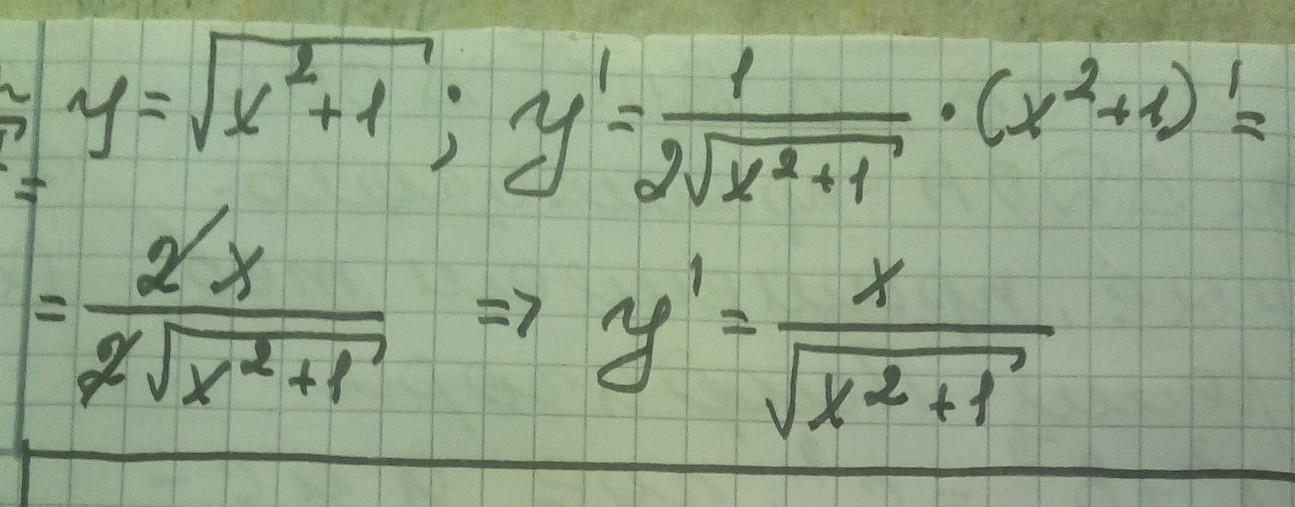 y = √(x² + 1) ; y' = 1 / (2√(x² + 1)) · (x² + 1)' =
= 2x / (2√(x² + 1)) => y' = x / √(x² + 1)